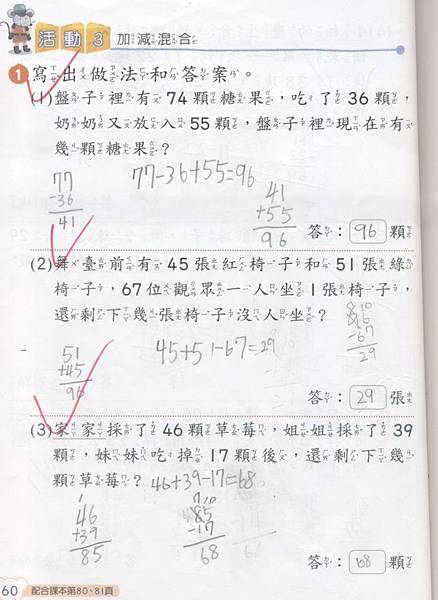 活動 3 加減混合
1 寫出做法和答案。
(1)盤子裡有 74 顆糖果，吃了 36 顆，
奶奶又放入 55 顆，盤子裡現在有
幾顆糖果？
77-36+55=96
77
-36
41
41
+55
96
答：96 顆
(2)舞臺前有 45 張紅椅子和 51 張綠
椅子，67 位觀眾一人坐 1 張椅子，
還剩下幾張椅子沒人坐？
51
+45
96
45+51-67=29
8 10
96
-67
29
答：29 張
(3)家家採了 46 顆草莓，姐姐採了 39
顆，妹妹吃掉 17 顆後，還剩下幾
顆草莓？
46+39-17=68
1
46
+39
85
7 10
85
-17
68
答：68 顆
60 配合課本第80、81頁